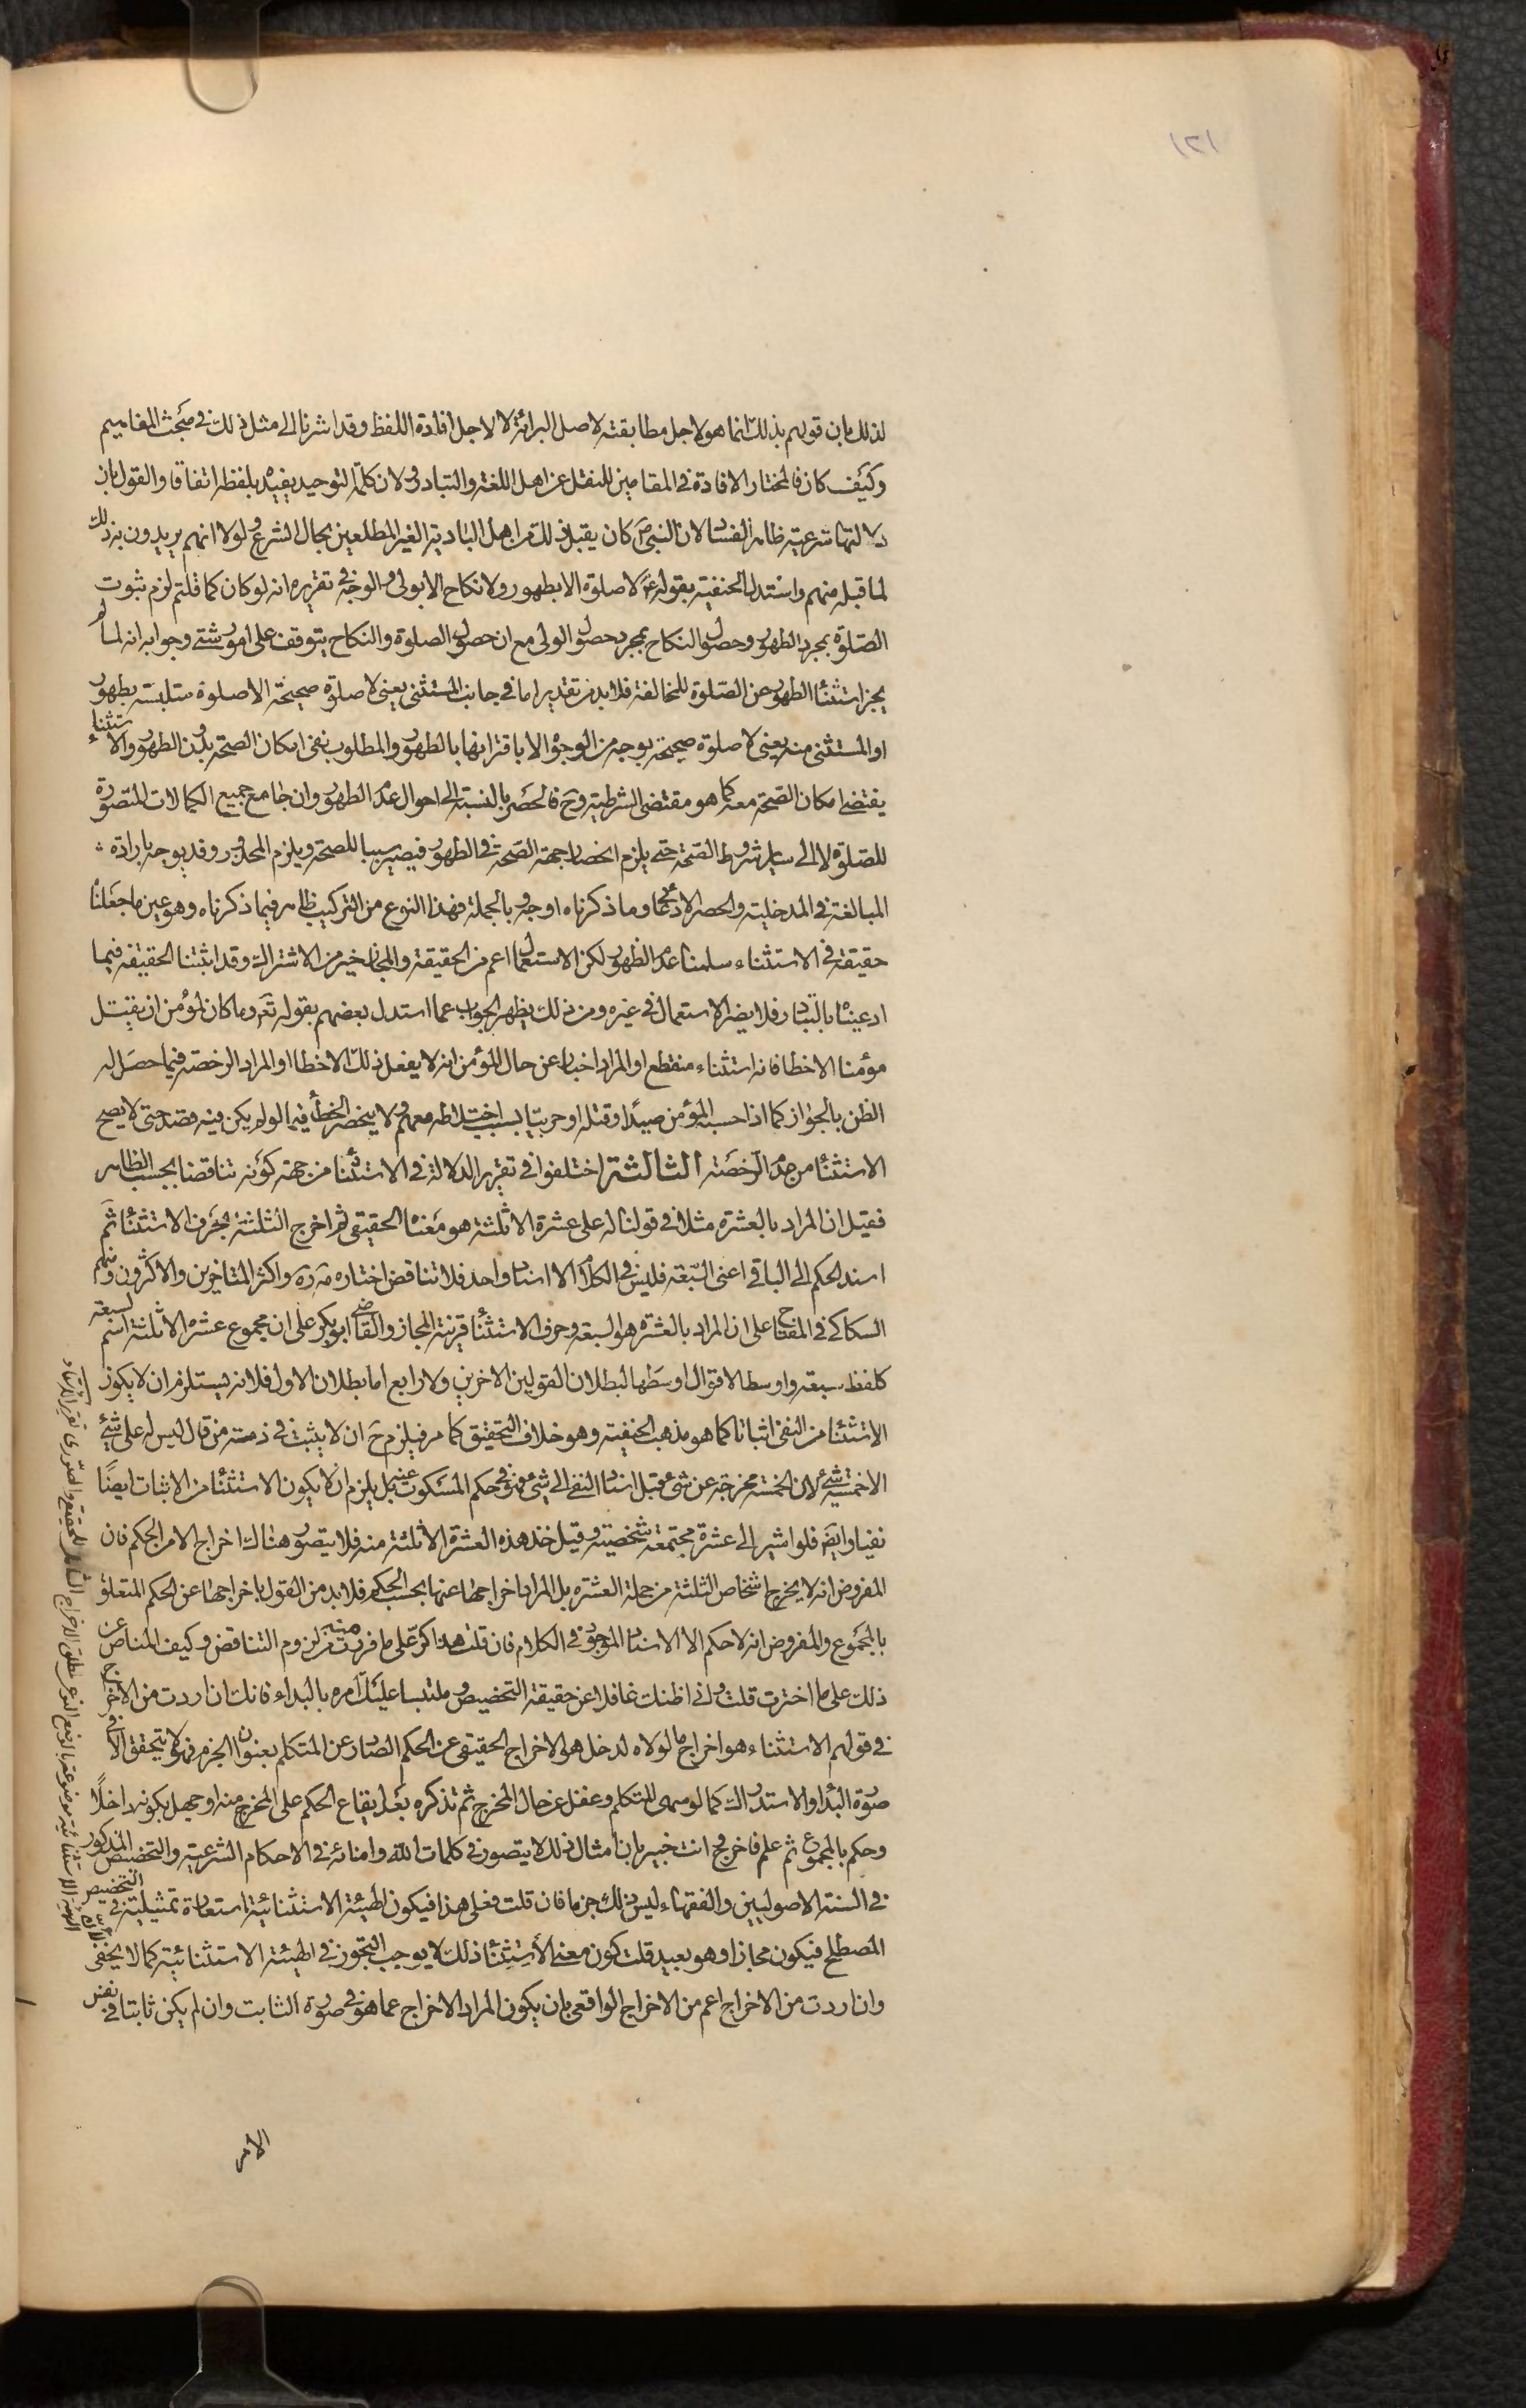 ١٢١
لذلك بان قولهم بذلك انما هو لاجل مطابقته لاصل البرائة لا لاجل افادة اللفظ وقد اشرنا الى مثل ذلك في مبحث المفاهيم
وكيف كان فالمختار الافادة في المقامين للنقل عن اهل اللغة والتبادر ولان كلمة التوحيد يفيده بلفظه اتفاقا والقول بان
دلالتها شرعية ظاهر الفساد لان النبي ص كان يقبل ذلك من اهل البادية الغير المطلعين بحال الشرع ولولا انهم يريدون به ذلك
لما قبله منهم واستدل الحنفية بقوله ع لا صلوة الا بطهور ولا نكاح الا بولي والوجه في تقريره انه لو كان كما قلتم لزم ثبوت
الصلوة بمجرد الطهور وحصول النكاح بمجرد حصول الولى مع ان حصول الصلوة والنكاح يتوقف على امور شتى وجوابه انه لما لم
يجز استثناء الطهور عن الصلوة للمخالفة فلابد من تقدير اما في جانب المستثنى يعنى لا صلوة صحيحة الا صلوة متلبسة بطهور
او المستثنى منه يعنى لا صلوة صحيحة بوجه من الوجوه الا باقترانها بالطهور والمطلوب نفى امكان الصحة بدون الطهور والاستثناء
يقتضى امكان الصحة معه كما هو مقتضى الشرطية وح فالحصر بالنسبة الى احوال عدم الطهور وان جامع جميع الكمالات المتصورة
للصلوة لا الى ساير شروط الصحة حتى يلزم انحصار جهة الصحة في الطهور فيصير سببا للصحة ويلزم المحذور وقد يوجه بارادة
المبالغة في المدخلية والحصر الادعائي وما ذكرناه اوجه وبالجملة فهذا النوع من التركيب ظاهر فيما ذكرناه وهو عين ما جعلناه
حقيقة في الاستثناء سلمنا عدم الظهور لكن الاستعمال اعم من الحقيقة والمجاز خير من الاشتراك وقد اثبتنا الحقيقة فيما
ادعيناه بالتبادر فلا يضر الاستعمال في غيره ومن ذلك يظهر الجواب عما استدل بعضهم بقوله تع وما كان لمؤمن ان يقتل
مؤمنا الا خطا فانه استثناء منقطع او المراد اخبار عن حال المؤمن انه لا يفعل ذلك الا خطا او المراد الرخصة فيما حصل له
الظن بالجواز كما اذا حسب المؤمن صيدا وقتله او حربيا بسبب اختلاطه معهم ولا ينحصر الخطأ فيما لو لم يكن فيه قصد حتى لا يصح
الاستثناء من جهة الرخصة الثالثة اختلفوا في تقرير الدلالة في الاستثناء من جهة كونه تناقضا بحسب الظاهر
فقيل ان المراد بالعشرة مثلا في قولنا له على عشرة الا ثلثة هو معناه الحقيقي ثم اخرج الثلثة بحرف الاستثناء ثم
اسند الحكم الى الباقي اعنى السبعة فليس في الكلام الا اسناد واحد فلا تناقض اختاره مه ره واكثر المتاخرين والاكثرون ومنهم
السكاكي في المفتاح على ان المراد بالعشرة هو السبعة وحرف الاستثناء قرينة المجاز والقاضي ابو بكر على ان مجموع عشرة الا ثلثة اسم لسبعة
كلفظ سبعة واوسط الاقوال اوسطها لبطلان القولين الاخرين ولا رابع اما بطلان الاول فلانه يستلزم ان لا يكون
الاستثناء من النفى اثباتا كما هو مذهب الحنفية وهو خلاف التحقيق كما مر فيلزم ح ان لا يثبت في ذمته من قال ليس له على شيء
الا خمسة شيء لان الخمسة مخرجة عن شئ قبل اسناد النفى الى شئ فهو في حكم المسكوت عنه بل يلزم ان لا يكون الاستثناء من الاثبات ايضا
نفيا وايضا فلو اشير الى عشرة مجتمعة شخصية وقيل خذ هذه العشرة الا ثلثة منه فلا يتصور هناك اخراج الا من الحكم فان
المفروض انه لا يخرج اشخاص الثلثة من جملة العشرة بل المراد اخراجها عنها بحسب الحكم فلابد من القول باخراجها عن الحكم المتعلق
بالمجموع والمفروض انه لا حكم الا الاسناد الموجود في الكلام فان قلت هذا كر على ما فررت منه من لزوم التناقض وكيف المناص عن
ذلك على ما اخترت قلت انى اظنك غافلا عن حقيقة التخصيص وملتبسا عليك امره بالبداء فانك ان اردت من الاخراج
في قولهم الاستثناء هو اخراج ما لولاه لدخل هو الاخراج الحقيقي عن الحكم الصادر عن المتكلم بعنوان الجزم فهو لا يتحقق الا في
صورة البداء والاستدراك كما لو سهى المتكلم وغفل عن حال المخرج ثم تذكره بعد ايقاع الحكم على المخرج منه او جهل بكونه داخلا
وحكم بالمجموع ثم علم فاخرج وح انت خبير بان امثال ذلك لا يتصور في كلمات الله وامنائه في الاحكام الشرعية والتخصيص المذكور
في السنة الاصوليين والفقهاء ليس ذلك جزما فان قلت فعلى هذا فيكون الهيئة الاستثنائية استعارة تمثيلية في التخصيص
المصطلح فيكون مجازا وهو بعيد قلت كون معنى الاستثناء ذلك لا يوجب التجوز في الهيئة الاستثنائية كما لا يخفى
وان اردت من الاخراج اعم من الاخراج الواقعي بان يكون المراد الاخراج عما هو في صورة الثابت وان لم يكن ثابتا في نفس
الامر